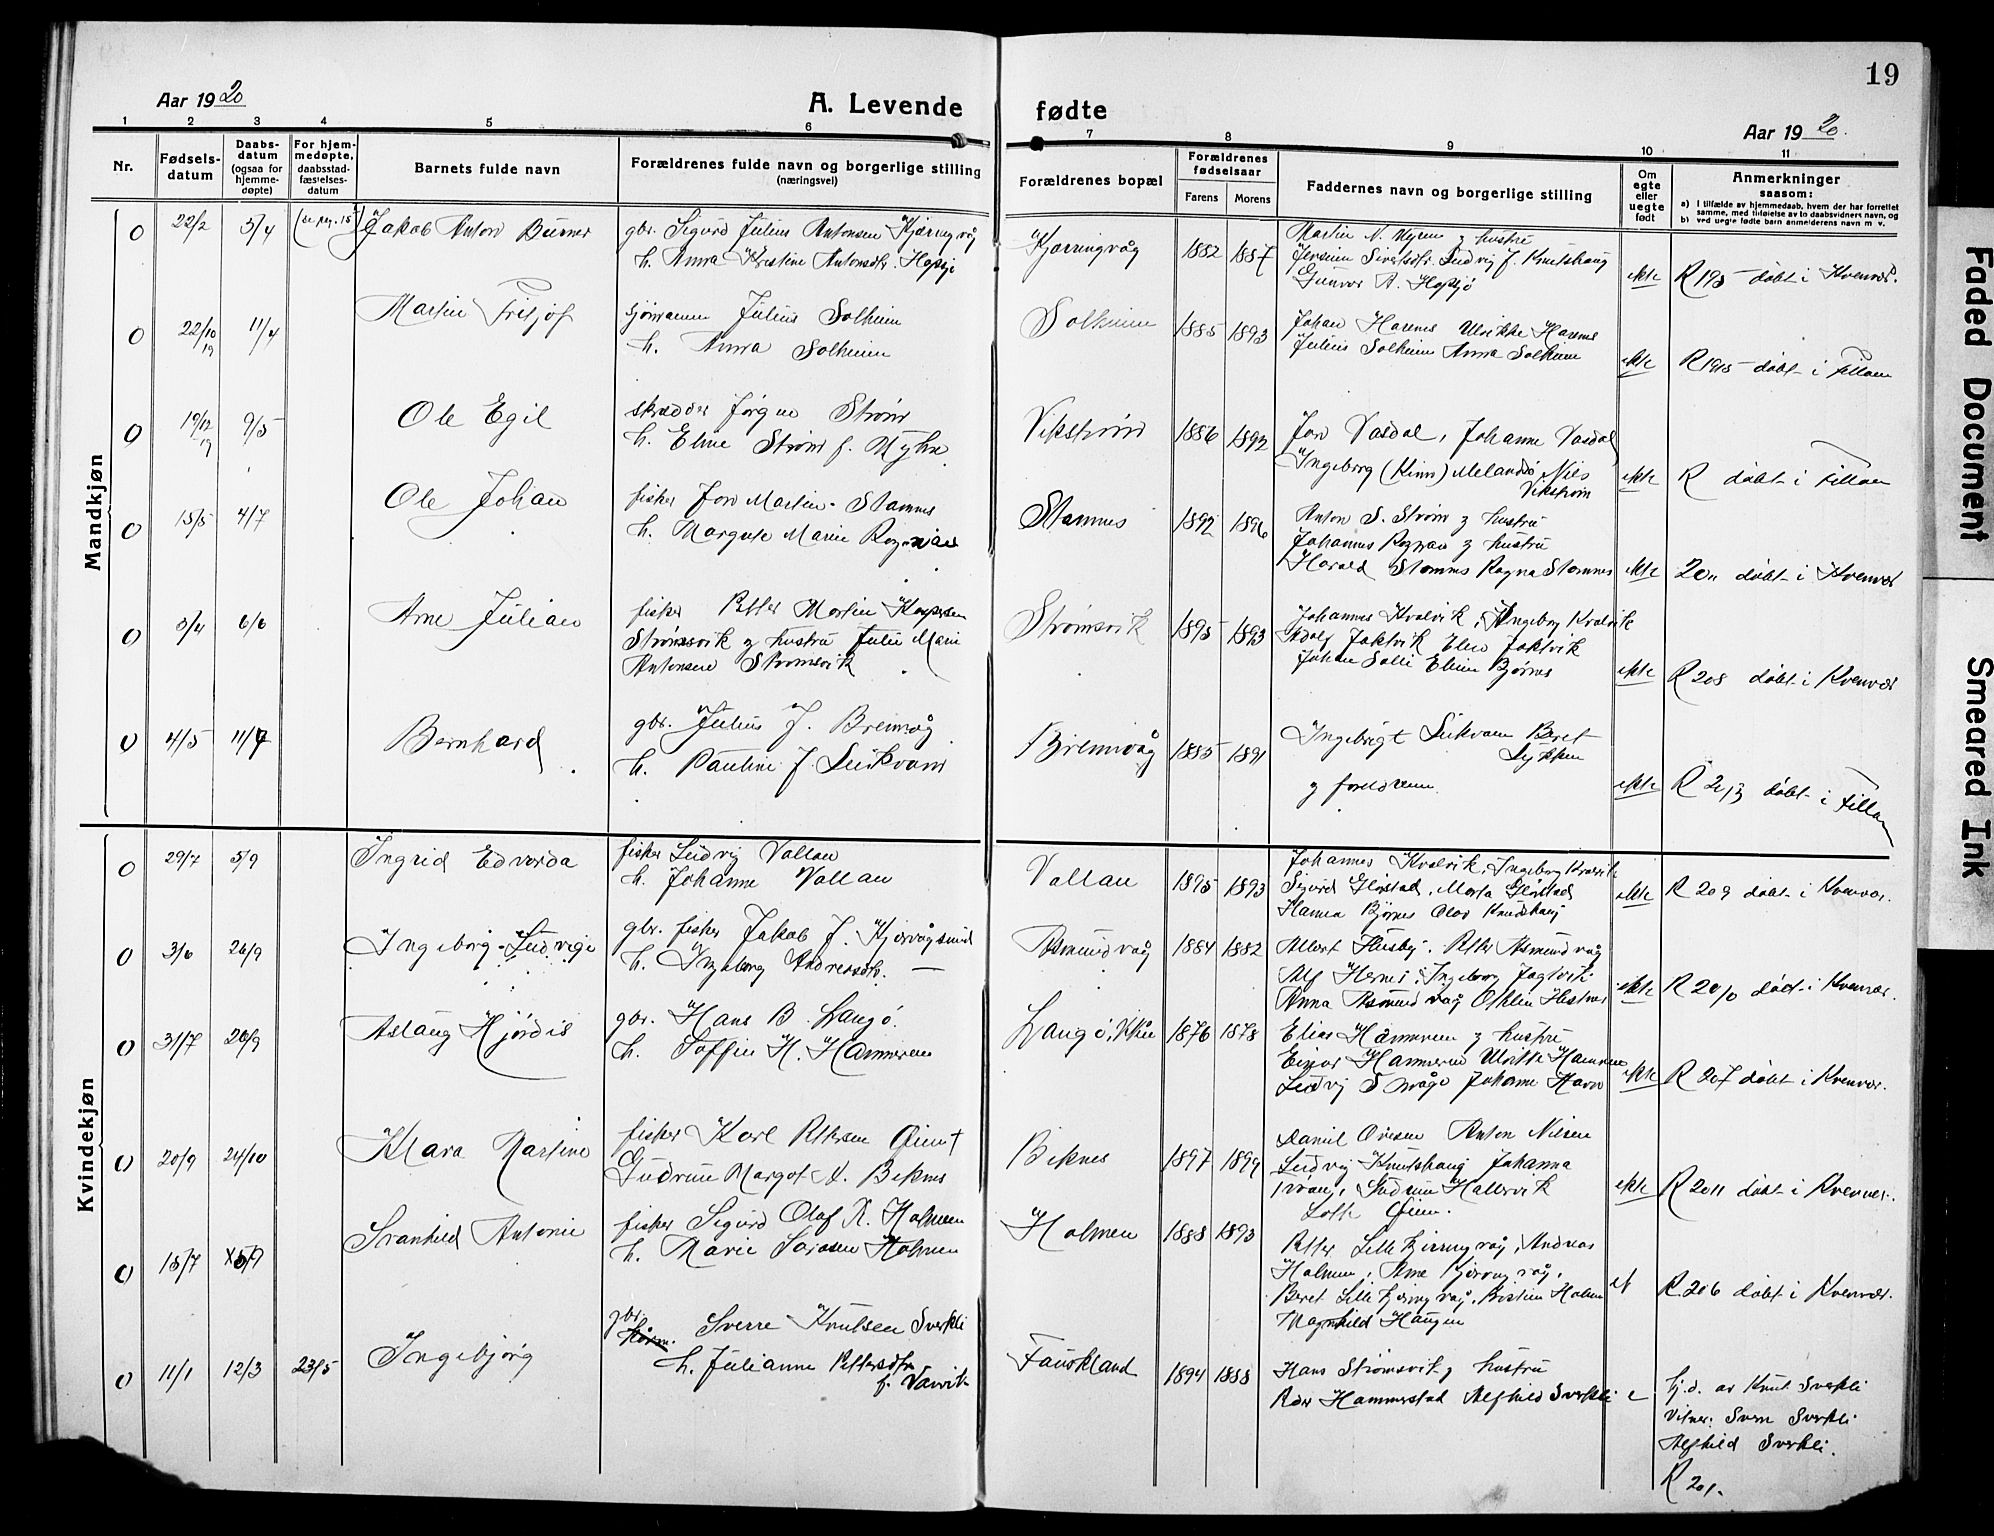 19
Aar 1920
A. Levende fødte
Aar 1920.
1 2 3 4 5 6 7 8 9 10 11
Nr.
Fødsels-
datum
Daabs-
datum
(ogsaa for
hjemme-
døpte)
For hjem-
medøpte,
daabsstad-
fæstelses-
datum
Barnets fulde navn
Forældrenes fulde navn og borgerlige stilling
(næringsvei)
Forældrenes bopæl
Forældrenes
fødselsaar
Farens Morens
Faddernes navn og borgerlige stilling
Om
egte
eller
uegte
født
Anmerkninger
saasom:
a) I tilfælde av hjemmedaab, hvem der har forrettet
samme, med tilføielse av to daabsvidners navn, og
b) ved uegte fødte barn anmelderens navn m. v.
Mandkjøn
0 22/2 5/4 Jakob Anton
gbr. Sigurd Julius Antonsen Kjærringvåg
h. Anna Kristine Antonsdtr. Hopsjø
Kjærringvåg 1882 1887
Martin N. Myren og hustru
Sivertsdtr. Ludvig J. Knutshaug
Gunvor A. Hopsjø
ekte døbt i Kvenvær.
0 22/10 19 11/4 Martin Fritjof
Julius Solheim
h. Anna Solheim
Solheim 1885 1893
Johan Ulrikke
Julius Solheim Anna Solheim
ekte døbt i Fillan
0 19/12 19 9/5 Ole Egil
skrædder Jørgen Strøm
h. Eline Strøm f. Myhre
Vikstrøm 1886 1892
Jon Vasdal, Johanne Vasdal
Ingeborg (Kinn) Melandsø, Nils
Vikstrøm
ekte R døbt i Fillan
0 15/5 4/7 Ole Johan
fisker Jon Martin Stamnes
h. Margrete Marie
Stamnes 1892 1896
Anton S. Strøm og hustru
Johannes og hustru
Harald Stamnes Ragna Stamnes
ekte døbt i Kvenvær
0 3/4 6/6 Arne Julian
fisker Petter Martin Kaspersen
Strømsvik og hustru Julie Marie
Antonsen Strømsvik
Strømsvik 1895 1893
Johannes Kvalvik, Ingeborg Kvalvik
Adolf Jaktvik Elen Jaktvik
Johan Solli Eline Bjørnes
ekte R 208 døbt i Kvenvær
0 4/5 11/7 Bernhard
gbr. Julius J. Bremvåg
h. Pauline J. Leikvam
Bremvåg 1885 1891
Ingebrigt Leikvam Beret
Lykken
og foreldrene.
ekte R døbt i Fillan
Kvindekjøn
0 29/7 5/9 Ingrid Edvarda
fisker Ludvig Vollan
h. Johanne Vollan
Vollan 1895 1893
Johannes Kvalvik, Ingeborg Kvalvik
Sigurd Glørstad, Marta Glørstad
Hanna Bjørnes Olav Knudshaug
ekte R 209 døbt i Kvenvær.
0 3/6 26/9 Ingeborg Ludvigie
gbr. fisker Jakob J. Kjervågsund
h. Ingeborg Andreasdtr. —
Asmundvåg 1884 1882
Albert Husby. Petter Asmundvåg
Alf Hernes, Ingeborg Jagtvik
Anna Asmundvåg Othlin Hestnes
ekte R 20/0 døbt i Kvenvær.
0 31/7 26/9 Aslaug Hjørdis
gbr. Hans B. Langø.
h. Soffie H. Hammeren
Langø, 1876 1878
Elias Hammeren og hustru
Einar Hammeren Ulrikke Hammeren
Ludvig Johanne Havn
ekte R 207 døbt i Kvenvær.
0 20/9 24/10 Klara Martine
fisker Karl Pettersen Øien +
Gudrun Margot A. Beknes
Beknes 1897 1899
Daniel Ovesen Anton Nilsen
Ludvig Knutshaug Johanna
Gudrun Hallersvik
Lotte Øien.
ekte R 2011 døbt i Kvenvær.
0 15/7 5/9 Svanhild Antonie
fisker Sigurd Olaf R. Holmen
h. Marie Holmen
Holmen 1888 1893
Petter Lillekjerringvåg, Andreas
Holmen, Arne Kjerringvåg,
Beret Lillekjerringvåg, Kristine Holmen
Magnhild Haugen
R 206 døbt i Kvenvær.
0 11/1 12/3 23/5 Ingebjørg
gbr. Sverre Knutsen Sverkli
h. Julianne Pettersdtr.
Fauskland 1894 1888
Hans Strømsvik og hustru
Hammerstad Alfhild Sverkli
e
hj.d. av Knut Sverkli
Vitner: Svein Sverkli
Alfhild Sverkli.
R 201.
Faded Document
Smeared Ink